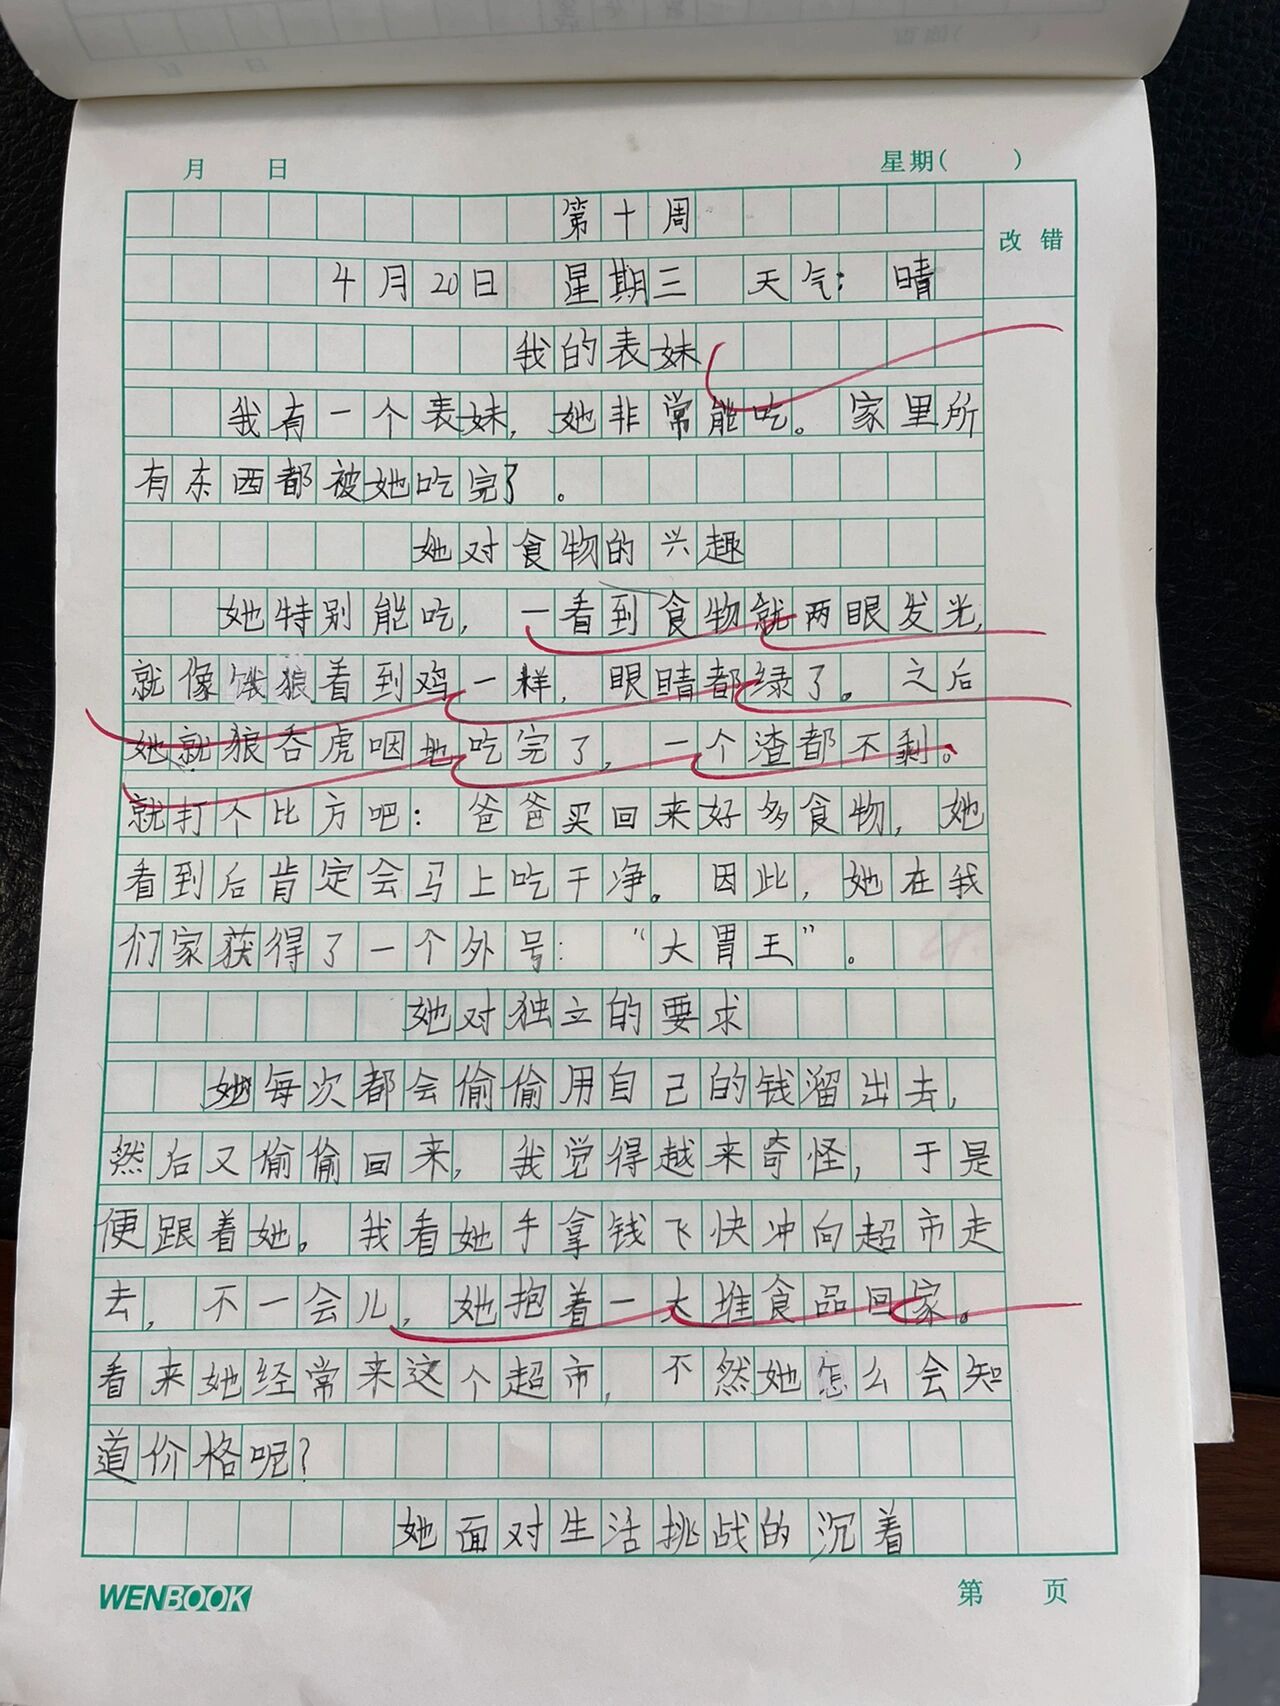 月 日 星期( )
改错
第十周
4月20日 星期三 天气：晴
我的表妹
我有一个表妹，她非常能吃。家里所
有东西都被她吃完了。
她对食物的兴趣
她特别能吃，一看到食物就两眼发光，
就像饿狼看到鸡一样，眼睛都绿了。之后
她就狼吞虎咽地吃完了，一个渣都不剩。
就打个比方吧：爸爸买回来好多食物，她
看到后肯定会马上吃干净。因此，她在我
们家获得了一个外号：“大胃王”。
她对独立的要求
她每次都会偷偷用自己的钱溜出去，
然后又偷偷回来，我觉得越来奇怪，于是
便跟着她。我看她手拿钱飞快冲向超市走
去，不一会儿，她抱着一大堆食品回家。
看来她经常来这个超市，不然她怎么会知
道价格呢？
她面对生活挑战的沉着
WENBOOK 第 页